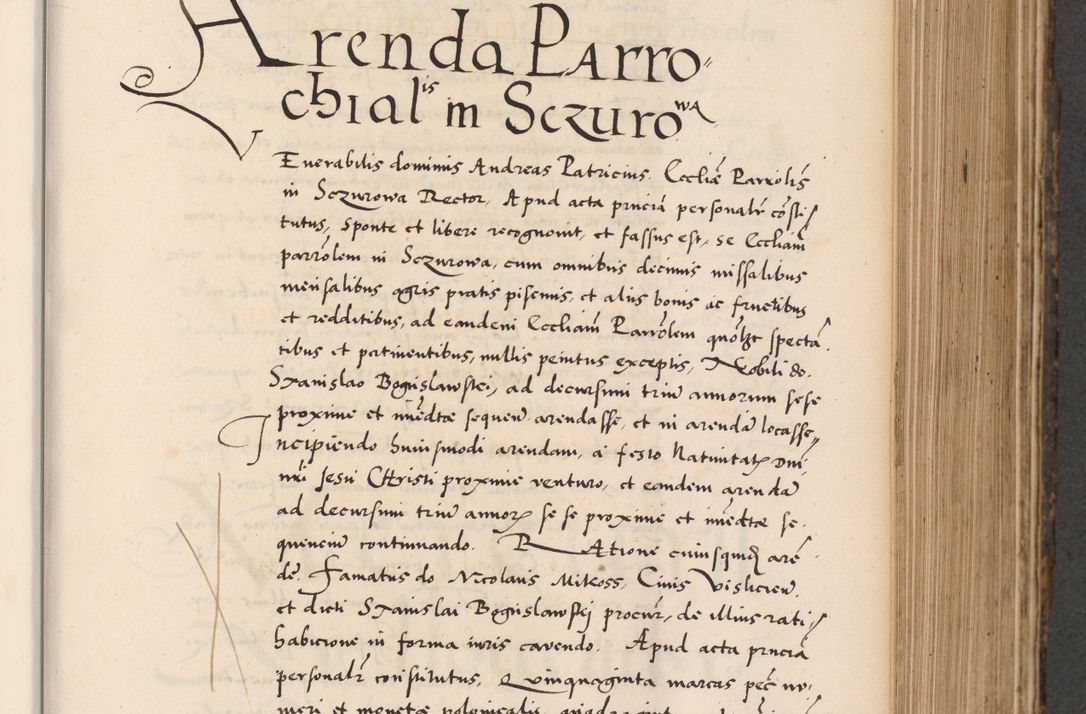 Arenda Parro-
chialis in Sczurowa
Venerabilis dominus Andreas Patricius Eccliæ Parrolis
in Sczurowa Rector, Apud acta prncia personalr consti/
tutus, sponte et libere recognouit, et fassus est, se Eccliam
parrolem in Sczurowa, cum omnibus decimis missalibus
mensalibus agris pratis piscinis, et aliis bonis ac fructibus
et redditibus, ad eandem Eccliam Parrolem quolzt specta
tibus et pertinentibus, nullis penitus exceptis, Nobili do.
Stanislao Boguslawskj, ad decursum triu annorum sese
proxime et imedtæ sequen. arendasse, et in arendã locasse,
Incipiendo huiusmodi arendam, a festo Natiuitatis Dni
nri Jesu Christi proxime venturo, et eandem arendã
ad decursum triu annorz se se proxime et imedtæ se-
quenciu continuando. Ratione cuiusquidz aren-
de. Famatus do Nicolaus Mikoss, Ciuis Vislicien.
et dicti Stanislai Boguslawskj procur, de illius rati/
habicione in forma iuris cauendo. Apud acta prncia
personalr constitutus, Quinquaginta marcas pec nu-
meri et monetæ polonicalis,